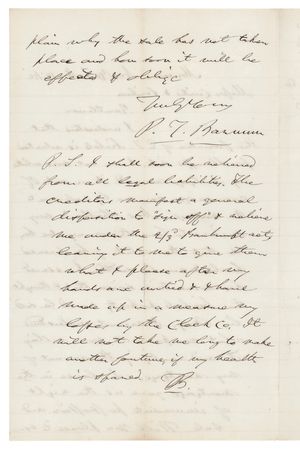 plain why the sale has not taken
place and how soon it will be
effected & oblige
Truly Yours
P. T. Barnum
P. S. I shall soon be relieved
from all legal liabilities. The
creditors manifest a general
disposition to sign off & relieve
me under the 2/3ds Bankrupt act,
leaving it to me to give them
what I please after my
hands are untied & I have
made up in a measure my
losses by the Clock Co. It
will not take me long to make
another fortune, if my health
is spared. B.